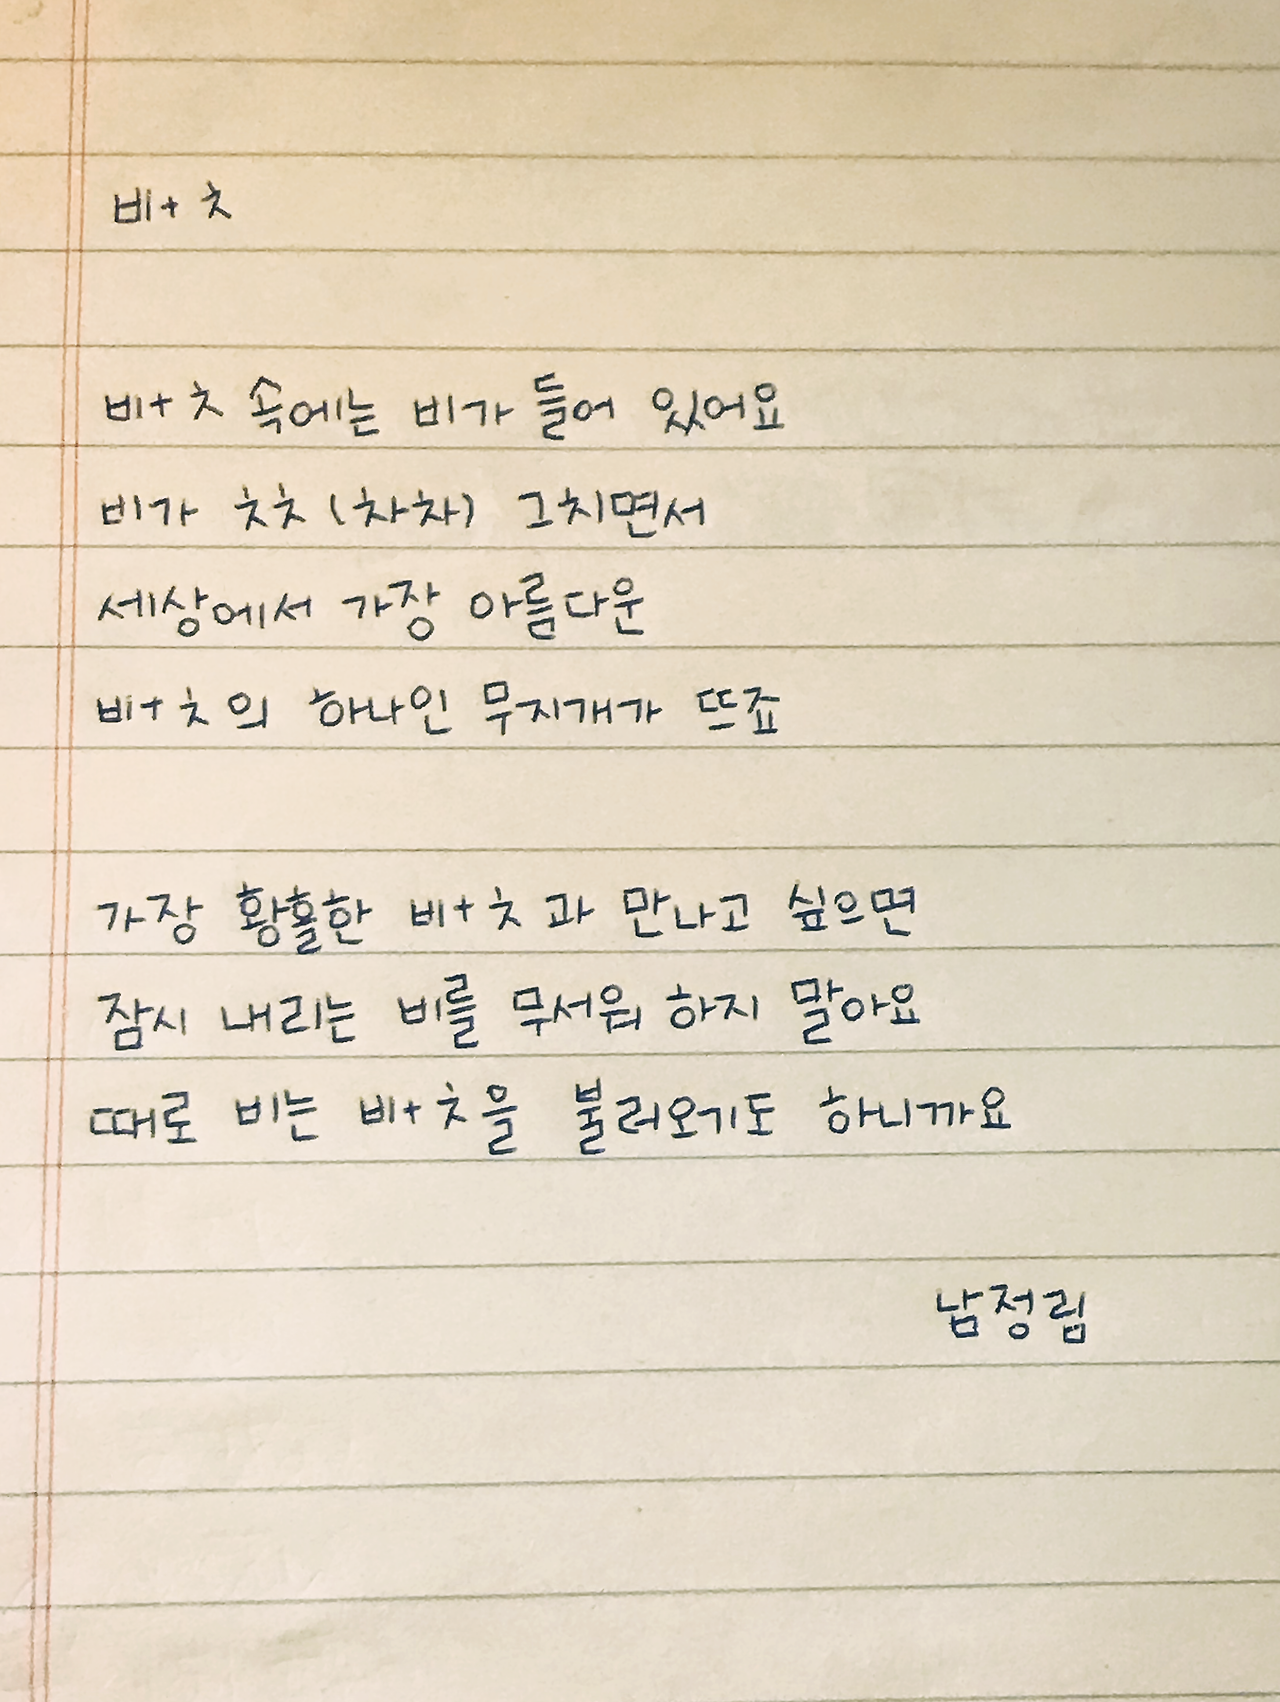 비+ㅊ
비+ㅊ 속에는 비가 들어 있어요
비가 ㅊㅊ (차차) 그치면서
세상에서 가장 아름다운
비+ㅊ의 하나인 무지개가 뜨죠
가장 황홀한 비+ㅊ과 만나고 싶으면
잠시 내리는 비를 무서워 하지 말아요
때로 비는 비+ㅊ을 불러오기도 하니까요
남정림